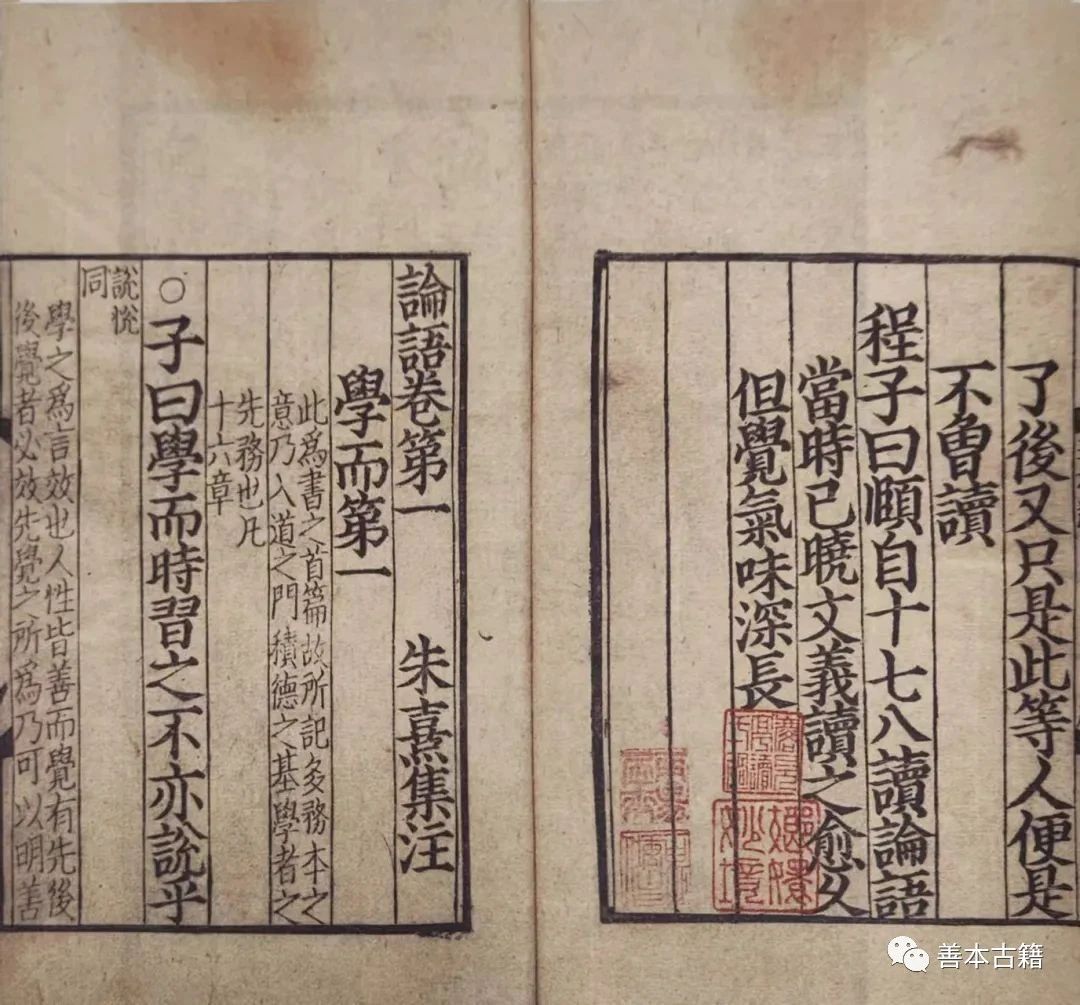 了後又只是此等人便是
不曾讀
程子曰頤自十七八讀論語
當時已曉文義讀之愈久
但覺氣味深長
嫏嬛
妙境
論語卷第一 朱熹集注
學而第一
此爲書之首篇故所記多務本之
意乃入道之門積德之基學者之
先務也凡
十六章
○子曰學而時習之不亦說乎
說悅
同
學之爲言效也人性皆善而覺有先後
後覺者必效先覺之所爲乃可以明善
善本古籍